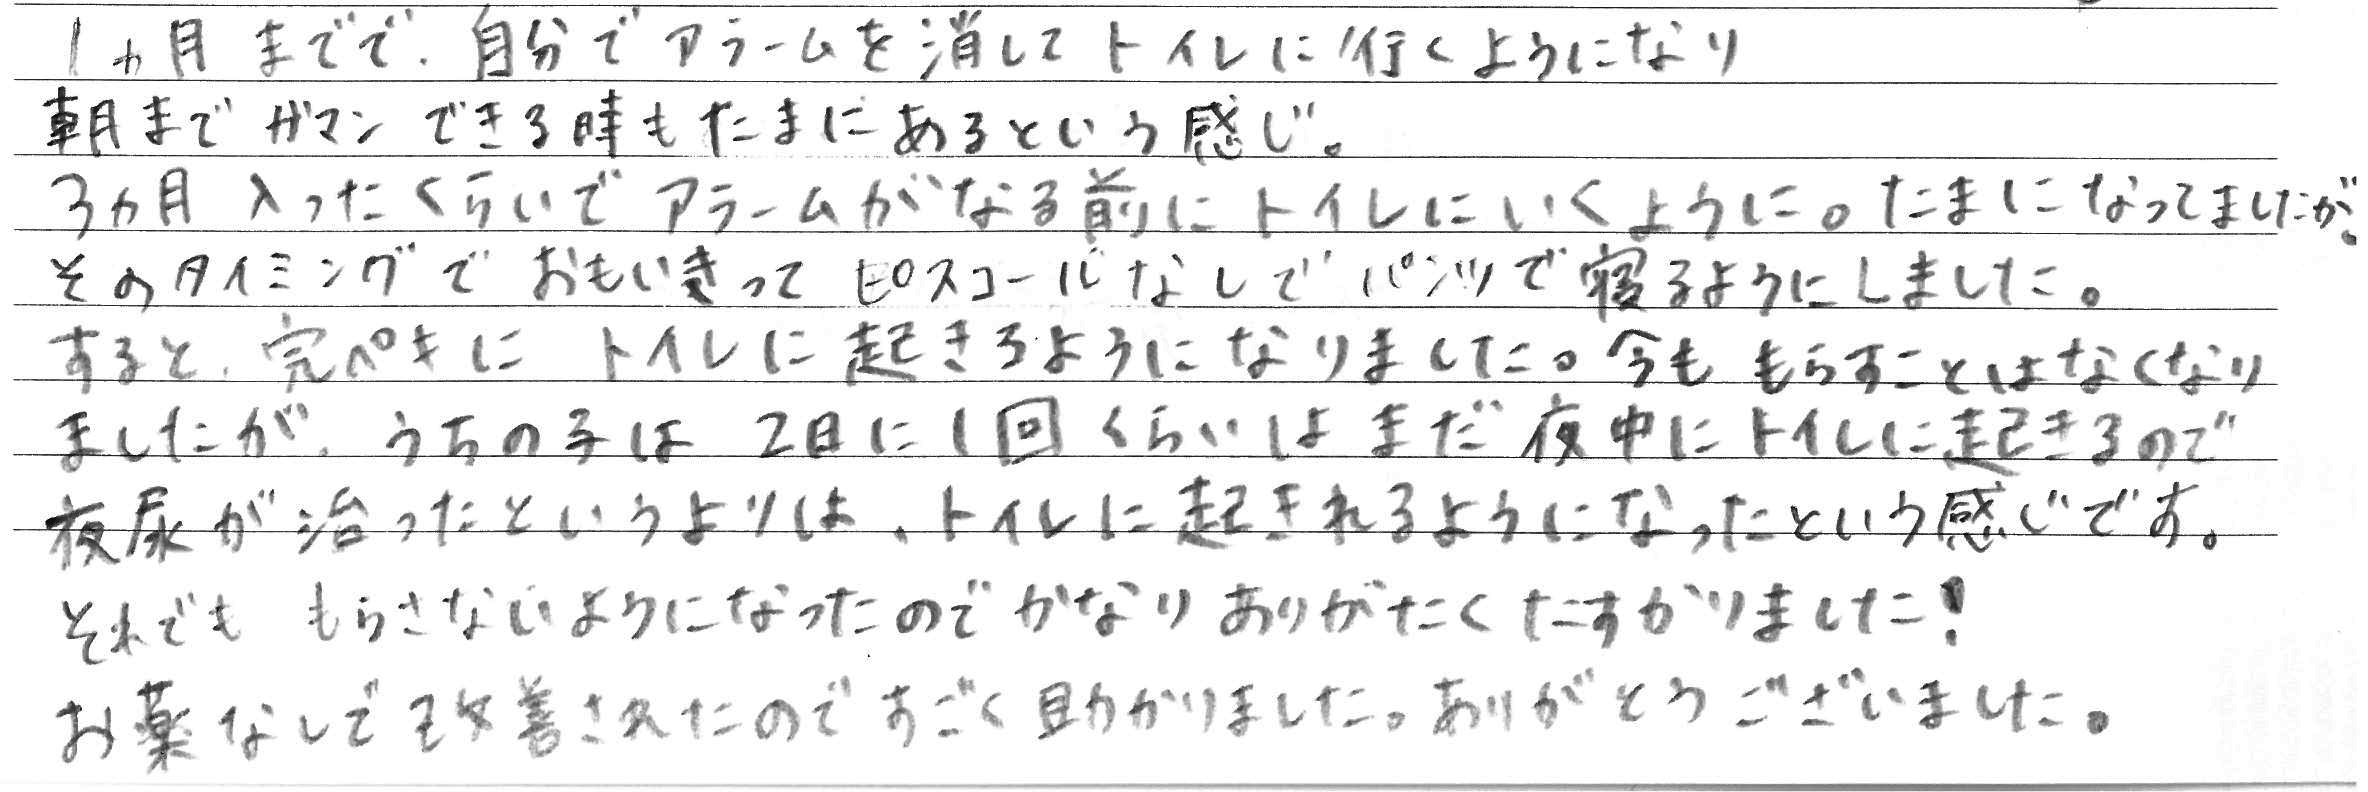 1ヵ月までで、自分でアラームを消してトイレに行くようになり
朝までガマンできる時もたまにあるという感じ。
3ヵ月入ったくらいでアラームがなる前にトイレにいくように。たまになってましたが、
そのタイミングでおもいきってピスコールなしでパンツで寝るようにしました。
すると、完ペキにトイレに起きるようになりました。今ももらすことはなくなり
ましたが、うちの子は2日に1回くらいはまだ夜中にトイレに起きるので
夜尿が治ったというよりは、トイレに起きれるようになったという感じです。
それでももらさないようになったのでかなりありがたくたすかりました!
お薬なしで改善されたのですごく助かりました。ありがとうございました。